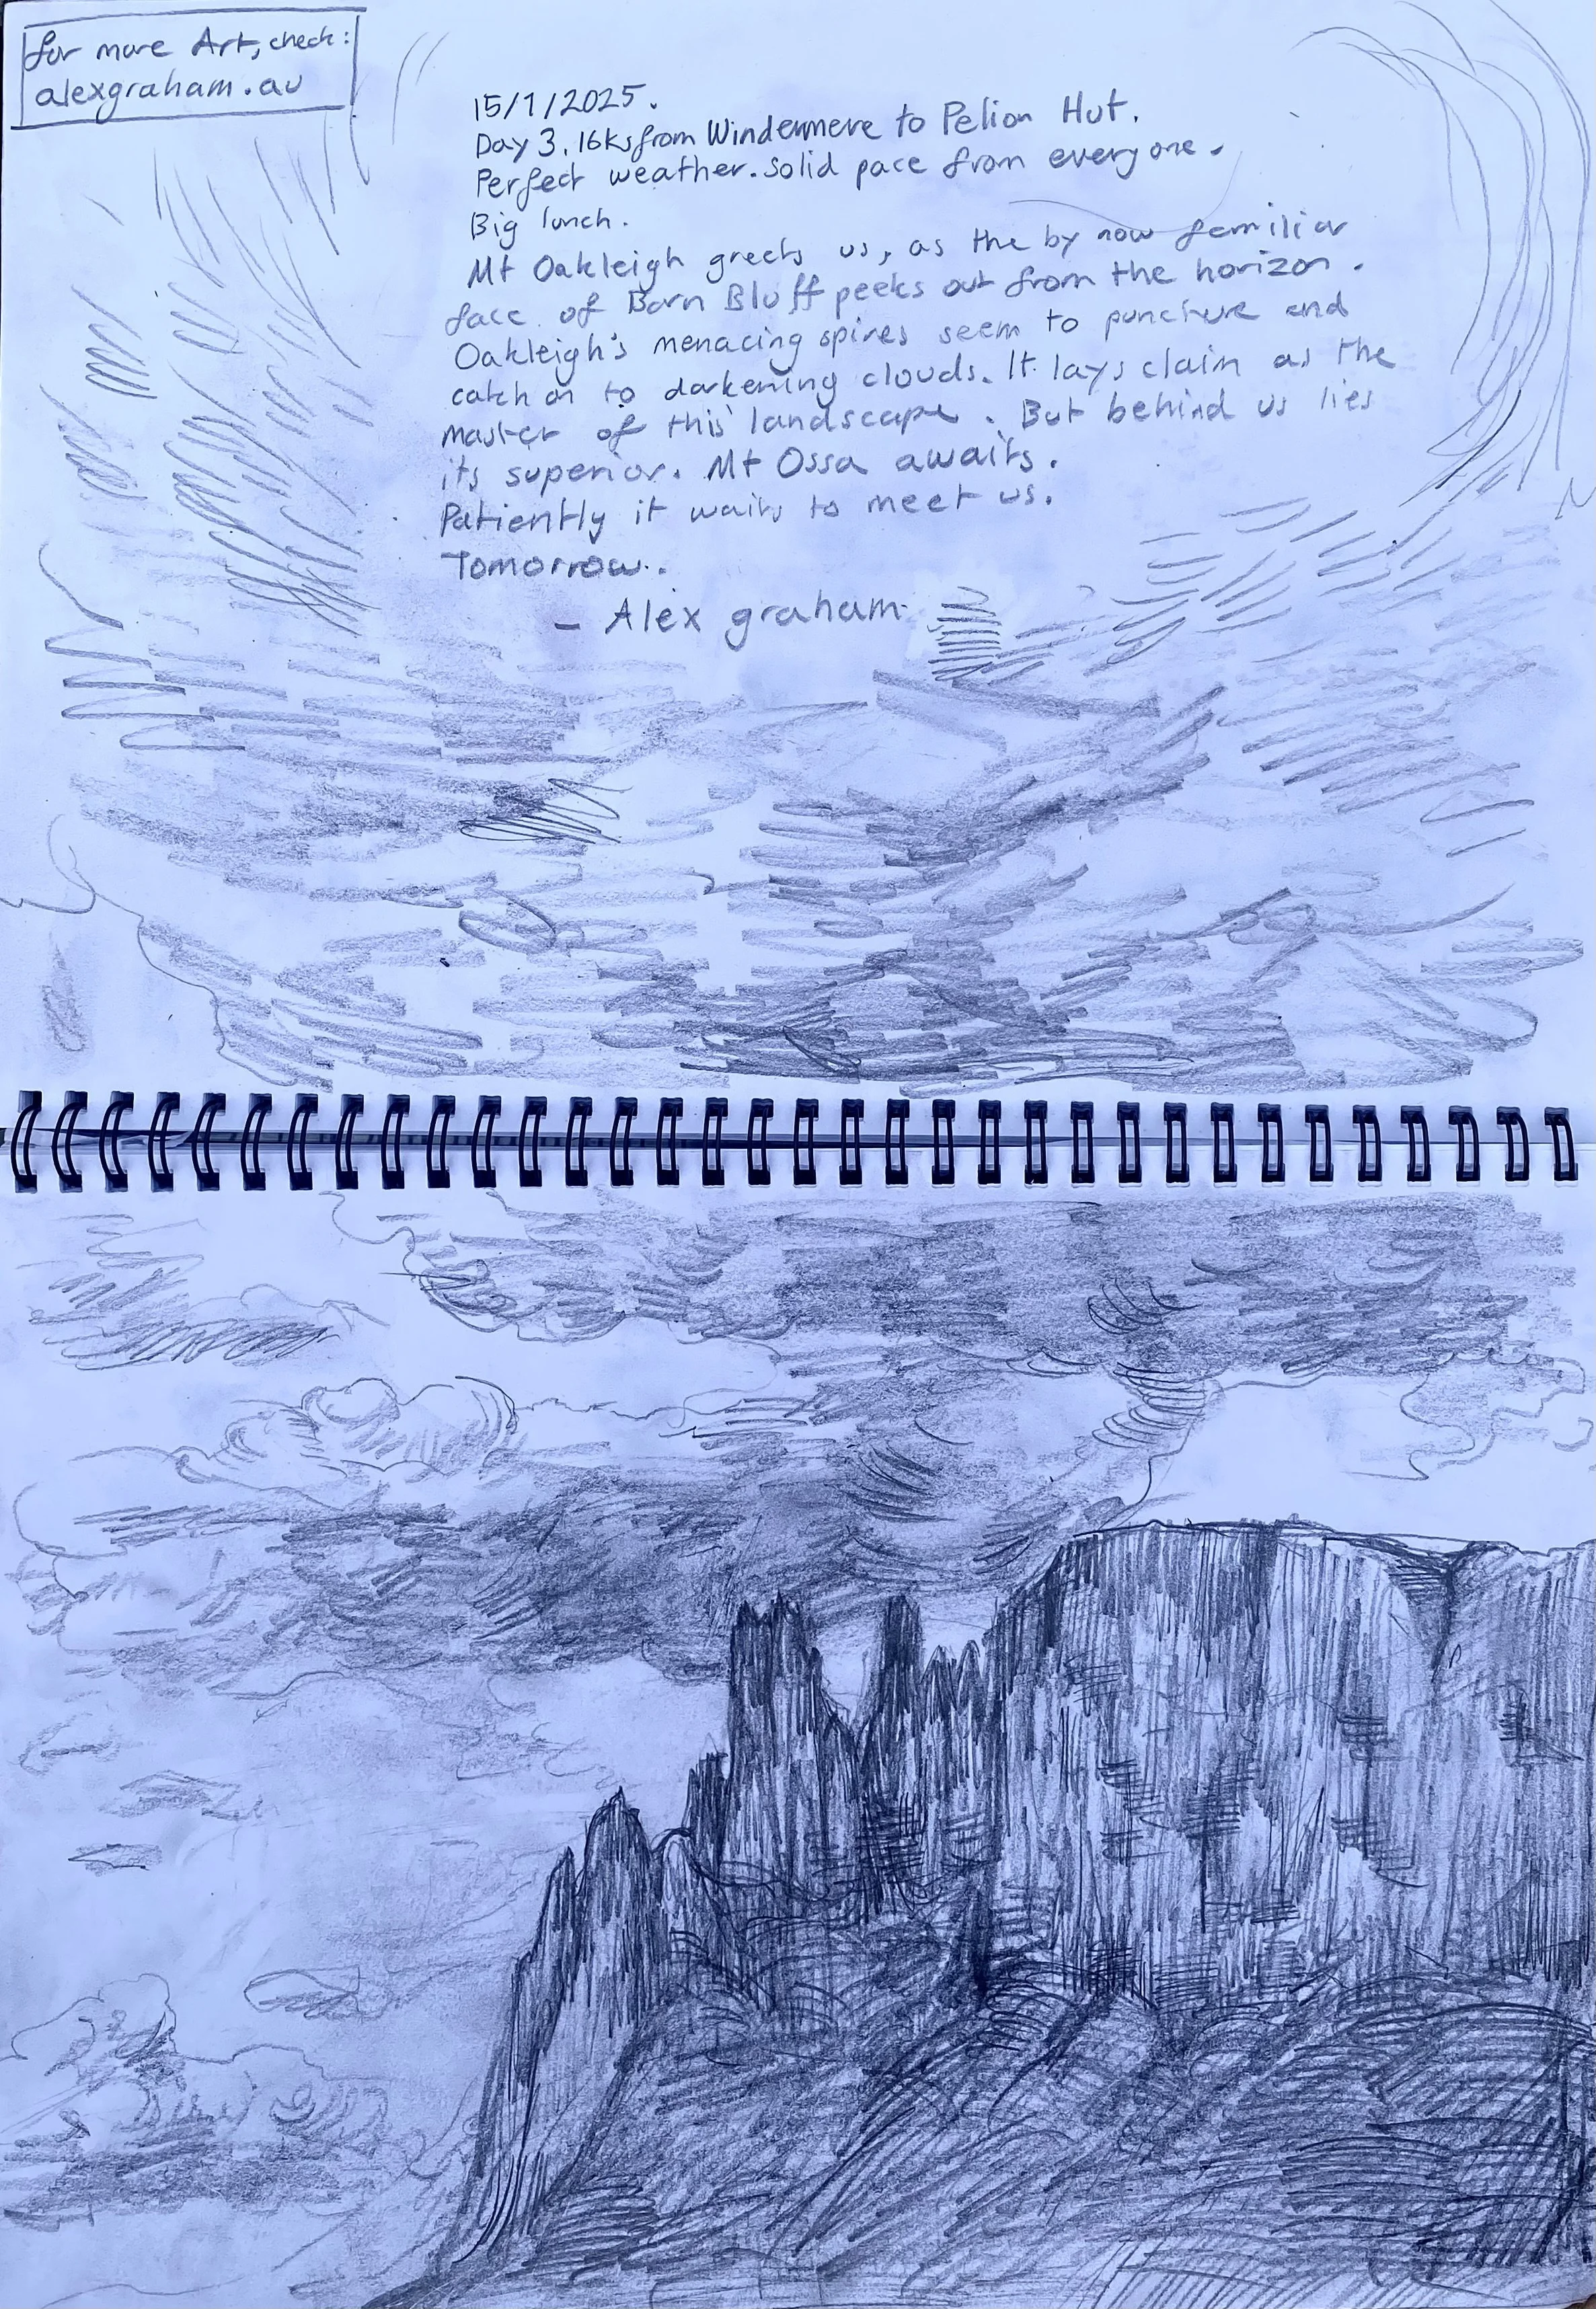 for more Art, check:
alexgraham.au
15/1/2025.
Day 3. 16ks from Windermere to Pelion Hut.
Perfect weather. Solid pace from everyone.
Big lunch.
Mt Oakleigh greets us, as the by now familiar
face of Barn Bluff peeks out from the horizon.
Oakleigh's menacing spires seem to puncture and
catch on to darkening clouds. It lays claim as the
master of this landscape. But behind us lies
its superior. Mt Ossa awaits.
Patiently it waits to meet us.
Tomorrow.
- Alex graham